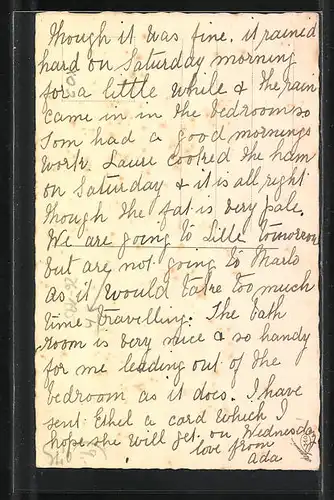 Though it was fine. it rained
hard on Saturday morning
for a little while & the rain
came in in the bedroom so
Tom had a good mornings
work. Laure cooked the ham
on Saturday & it is all right
though the fat is very pale.
We are going to Lille tomorrow
but are not going to
as it would take too much
time travelling. The bath
room is very nice & so handy
for me leading out of the
bedroom as it does. I have
sent Ethel a card which I
hope she will get on Wednesday
love from
Ada